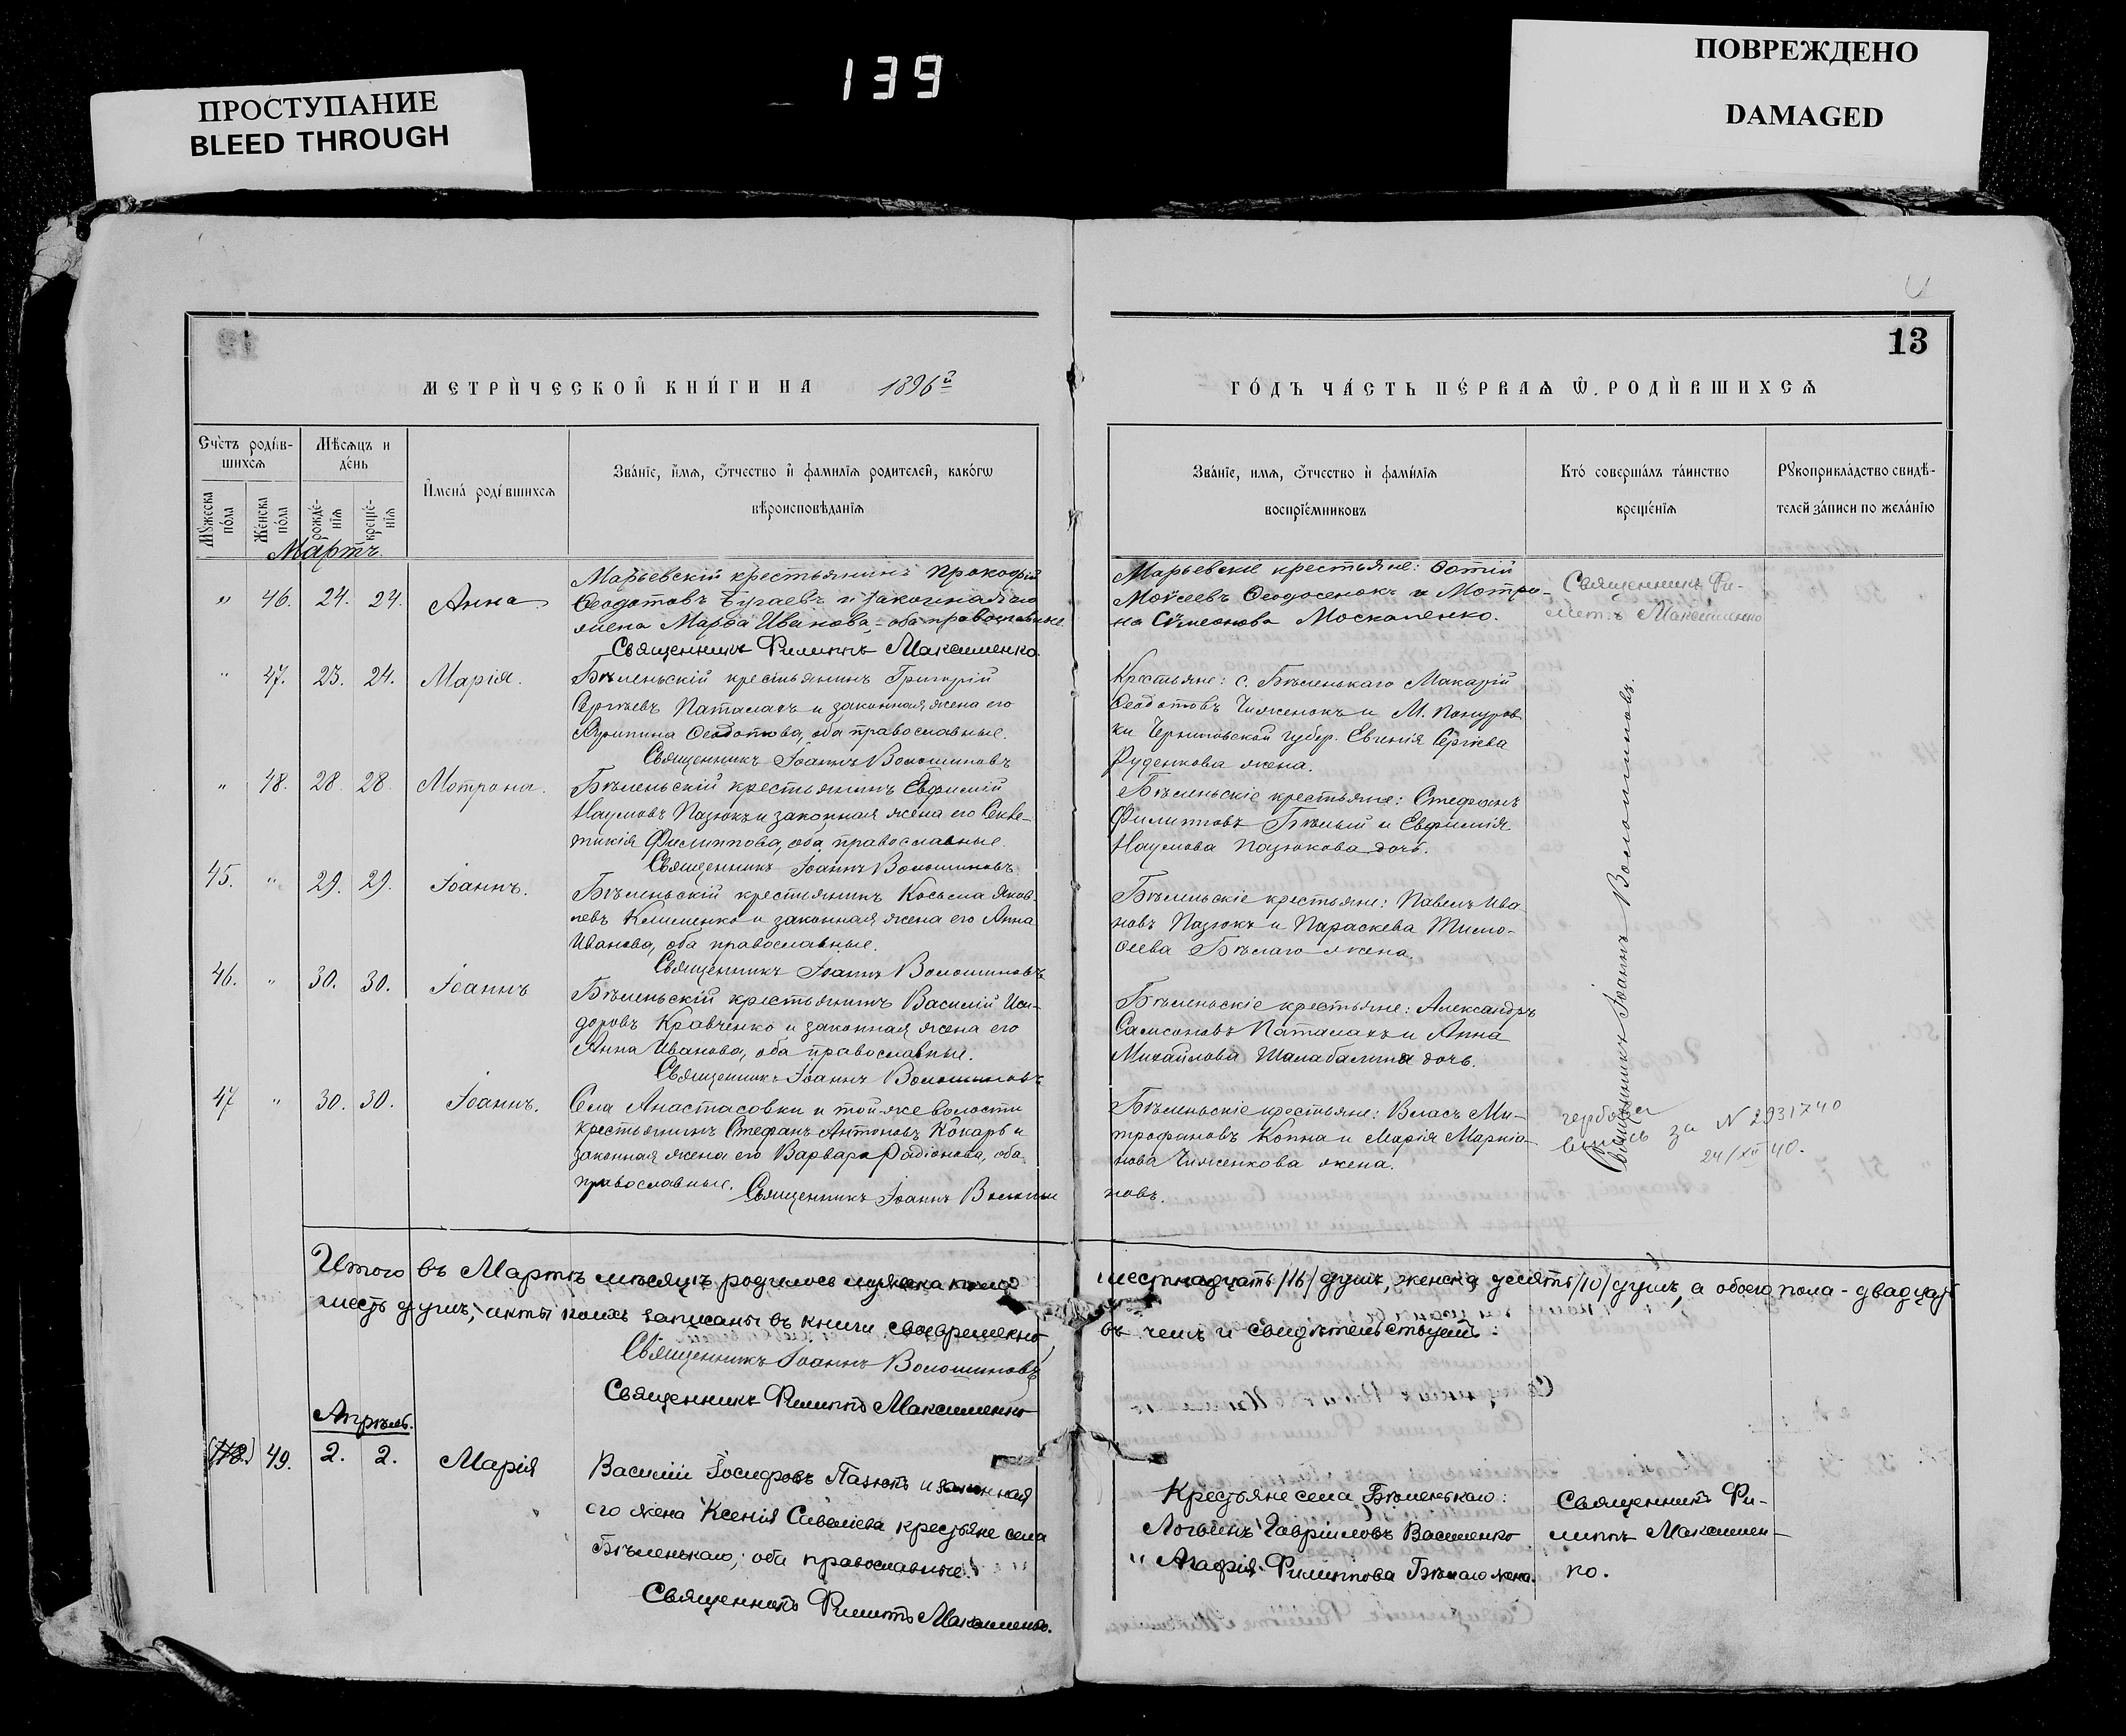 ПРОСТУПАНИЕ
BLEED THROUGH
139
ПОВРЕЖДЕНО
DAMAGED
13
МЕТРИ́ЧЕСКОЙ КНИ́ГИ НА 1896й
ГО́ДЪ ЧА́СТЬ ПЕ́РВАѦ Ѡ. РОДИ́ВШИХСѦ
Счетъ роди́в-
шихсѧ
Мѣсѧцъ и
де́нь
Мꙋжеска
по́ла
Же́нска
по́ла
рожде́-
нїѧ
креще́-
нїѧ
И҆мена̀ роди́вшихсѧ
Зва́нїе, и҆́мѧ, ѻ҆́тчество и҆ фамилїѧ родителей, како́гѡ
вѣроисповѣданїѧ
Зва́нїе, имѧ, ѻ҆́тчество и҆ фами́лїѧ
воспрїе́мниковъ
Кто́ соверша́лъ та́инство
креще́нїѧ
Рꙋкоприкла́дство свидѣ́-
телей за́писи по жела́нїю
Мартъ.
" 46. 24. 24. Анна
Марьевскій крестьянинъ Прокофій
Ѳеодотовъ Бугаевъ и законная его
жена Марѳа Иванова, оба православные
Священникъ Филиппъ Максименко.
Марьевскіе крестьяне: Фотій
Моѵсеевъ Ѳеодосенокъ и Мотро-
на Сѵмеонова Москаленко.
Священникъ Фи-
липпъ Максименко
" 47. 23. 24. Марія.
Бѣленьскій крестьянинъ Григорій
Сергѣевъ Паталахъ и законная жена его
Агрипина Ѳеодотова, оба православные.
Священникъ Іоаннъ Волошиновъ
Крестьяне: с. Бѣленькаго Макарій
Ѳеодотовъ Чиженокъ и М. Понуров
ки Черниговской губер. Евгенія Сергіева
Руденкова жена.
" 48. 28. 28. Мотрона.
Бѣленьскій крестьянинъ Евфимій
Наумовъ Пазюкъ и законная жена его
Филиппова, оба православные.
Священникъ Іоаннъ Волошиновъ
Бѣленьскіе крестьяне: Стефанъ
Филипповъ Бѣлый и Евфимія
Наумова Пазюкова дочь.
45. " 29. 29. Іоаннъ.
Бѣленьскій крестьянинъ Косьма Яков-
левъ Клименко и законная жена его Анна
Иванова, оба православные.
Священникъ Іоаннъ Волошиновъ
Бѣленьскіе крестьяне: Павелъ Ива
новъ Пазюкъ и Параскева Тимо-
ѳеева Бѣлаго жена.
46. " 30. 30. Іоаннъ
Бѣленьскій крестьянинъ Василій Иси-
доровъ Кравченко и законная жена его
Анна Иванова, оба православные.
Священникъ Іоаннъ Волошиновъ
Бѣленьскіе крестьяне: Александръ
Самсоновъ Паталахъ и Анна
Михайлова Шалабалина дочь.
47 " 30. 30. Іоаннъ.
Села Анастасовки и той же волости
крестьянинъ Стефанъ Антоновъ Кокарь и
законная жена его Варвара Радіонова, оба
православные. Священникъ Іоаннъ Волоши
новъ.
Бѣленьскіе крестьяне: Власъ Ми-
трофановъ Копна и Марія Маркіа-
нова Чиженкова жена.
Священникъ Іоаннъ Волошиновъ.
за N 2931740
24/XII 40.
Итого въ Мартѣ мѣсяцѣ родилось мужеска пола
шестнадцать /16/ душъ, женска десять /10/ душъ, а обоего пола - двадцать
шесть душъ, акты коихъ записаны въ книги своевременно
въ чемъ и свидѣтельствуемъ:
Священникъ Іоаннъ Волошиновъ
Священникъ Филиппъ Максименко
Апрѣль.
(48.) 49. 2. 2. Марія
Василій Іосифовъ Пазюкъ и законная
его жена Ксенія Савеліева крестьяне села
Бѣленькаго, оба православные.
Священникъ Филиппъ Максименко.
Крестьяне села Бѣленькаго:
Логвинъ Гавріиловъ Василенко
и Агафія Филиппова Бѣлаго жена.
Священникъ Фи-
липпъ Максимен-
ко.